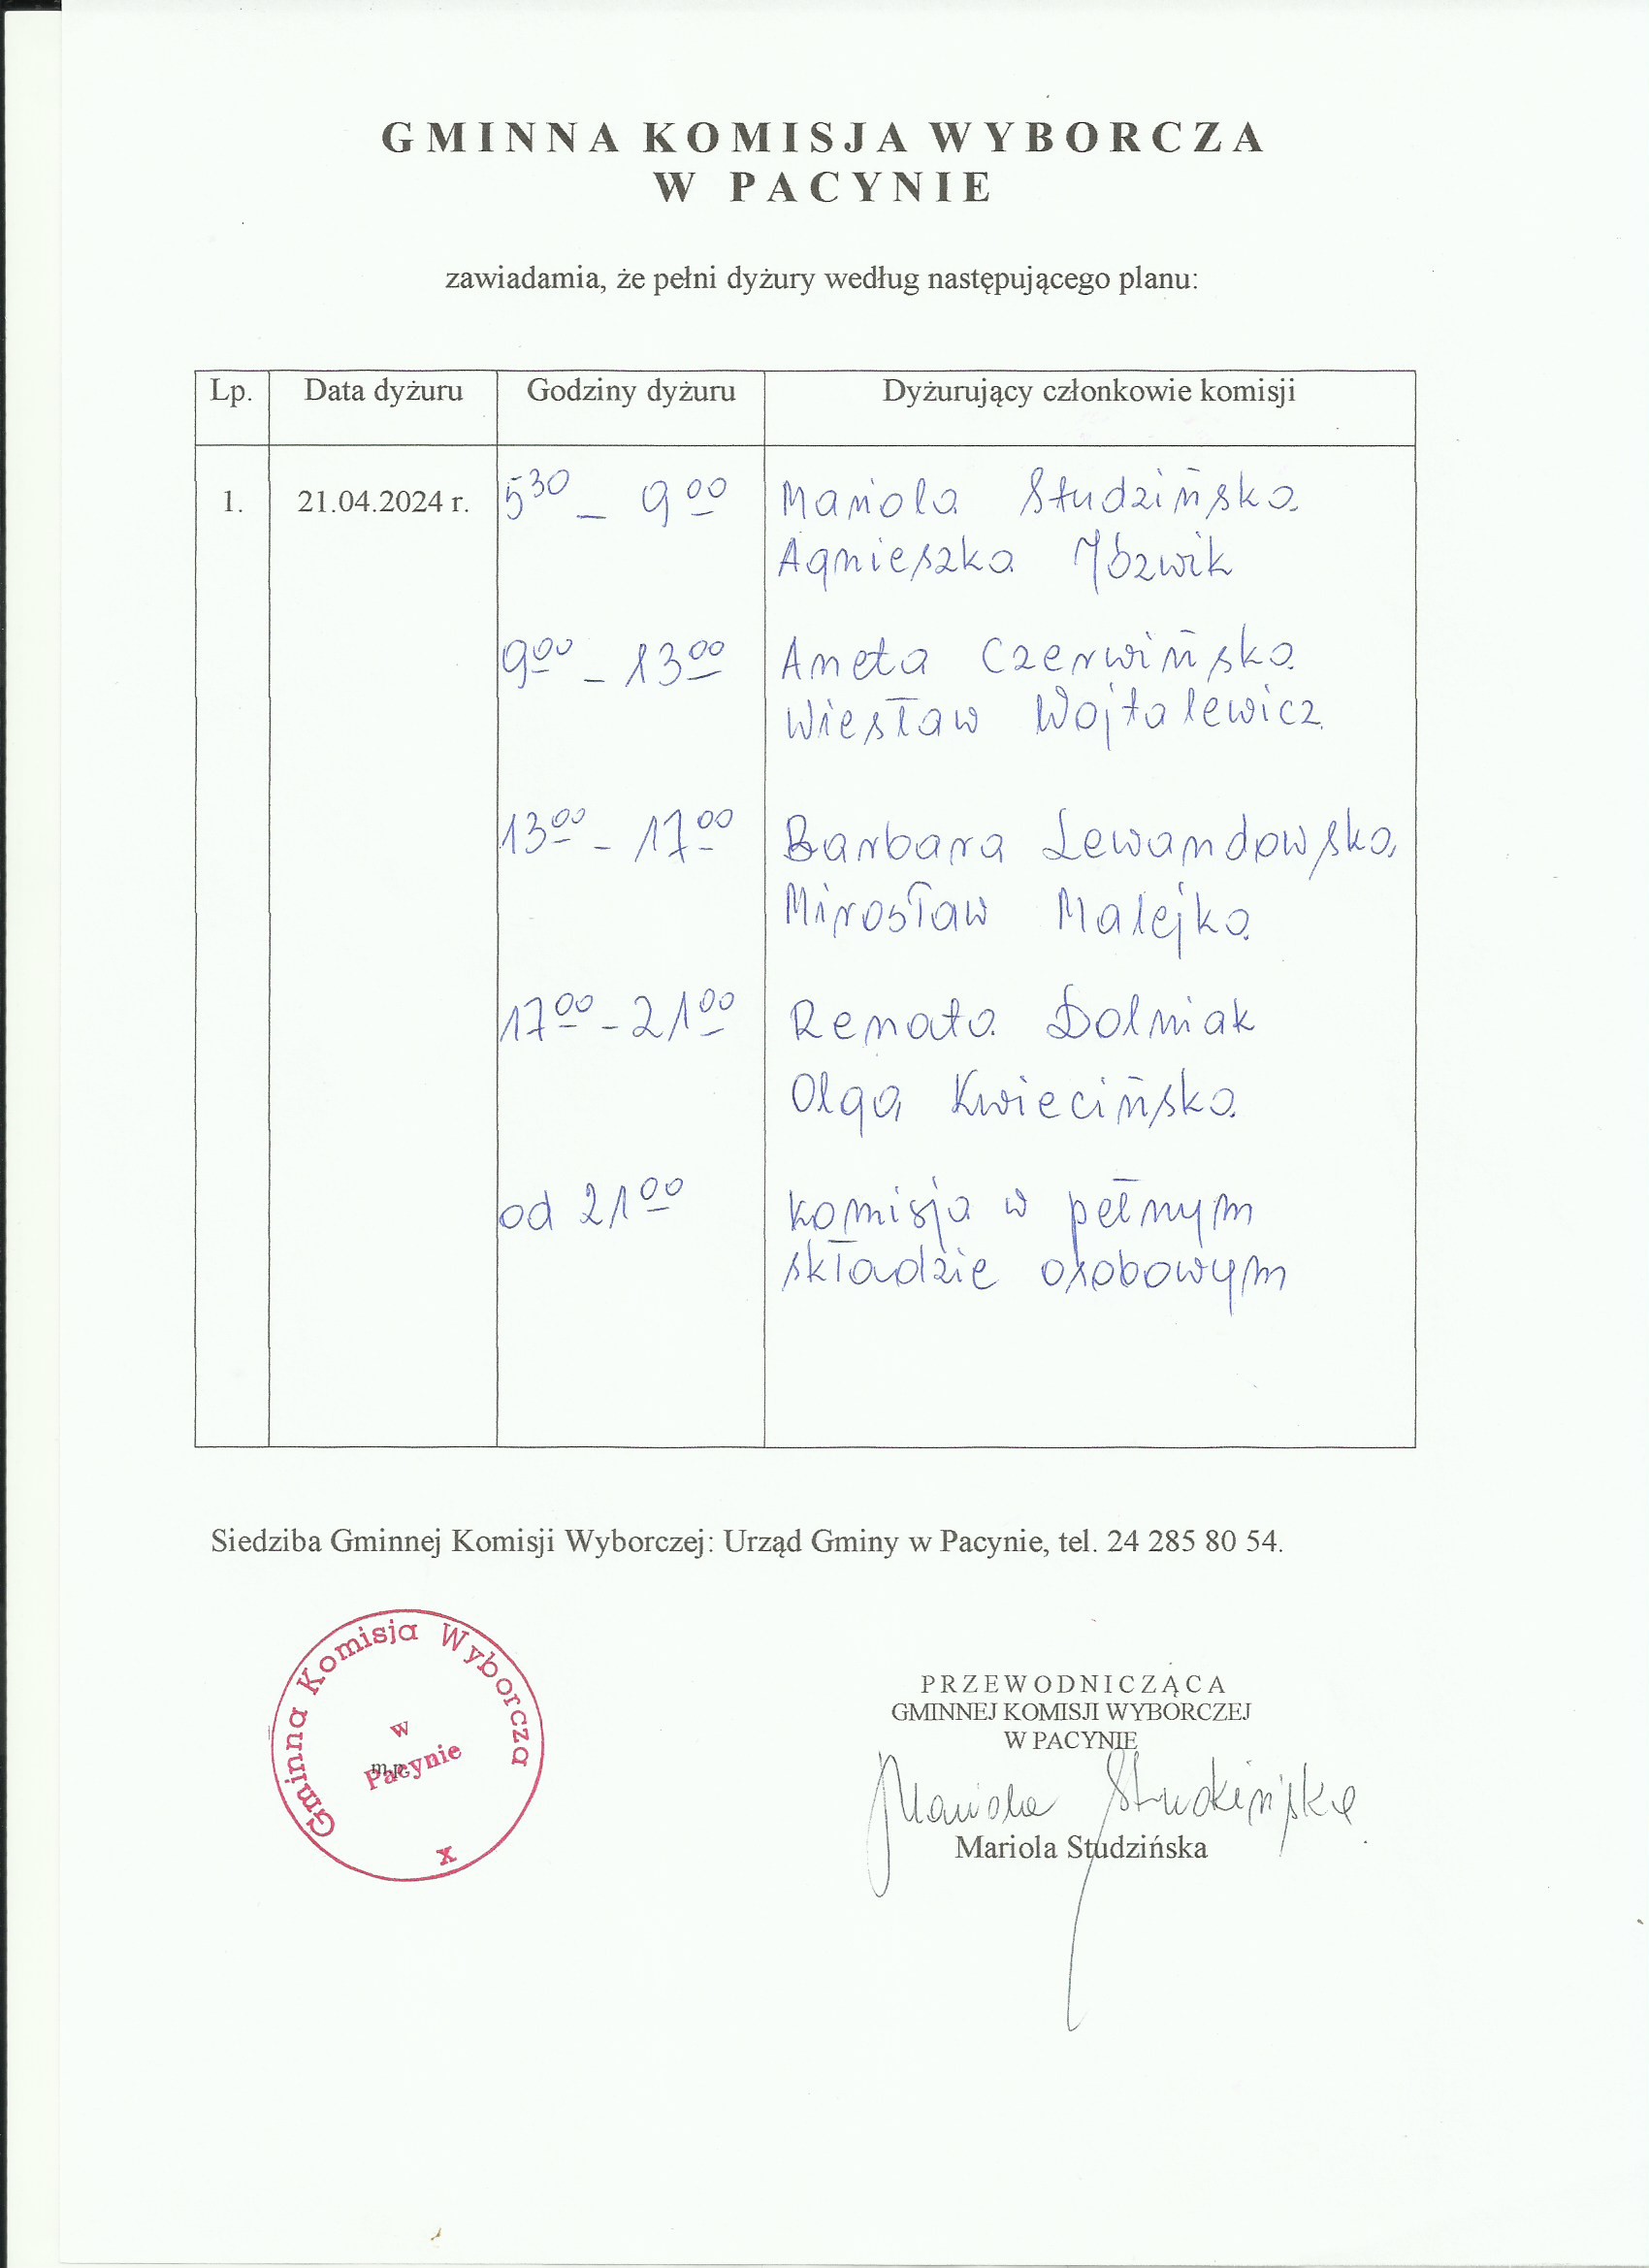 GMINNA KOMISJA WYBORCZA
W PACYNIE
zawiadamia, że pełni dyżury według następującego planu:
Lp. Data dyżuru Godziny dyżuru Dyżurujący członkowie komisji
1. 21.04.2024 r. 5³⁰ – 9⁰⁰ Mariola Studzińska
Agnieszka Józwik
9⁰⁰ – 13⁰⁰ Aneta Czerwińska
Wiesław Wojtalewicz
13⁰⁰ – 17⁰⁰ Barbara Lewandowska
Mirosław Malejka
17⁰⁰ – 21⁰⁰ Renata Dolniak
Olga Kwiecińska
od 21⁰⁰ komisja w pełnym
składzie osobowym
Siedziba Gminnej Komisji Wyborczej: Urząd Gminy w Pacynie, tel. 24 285 80 54.
Gminna Komisja Wyborcza
w
Pacynie
m.p.
x
PRZEWODNICZĄCA
GMINNEJ KOMISJI WYBORCZEJ
W PACYNIE
Mariola Studzińska
Mariola Studzińska